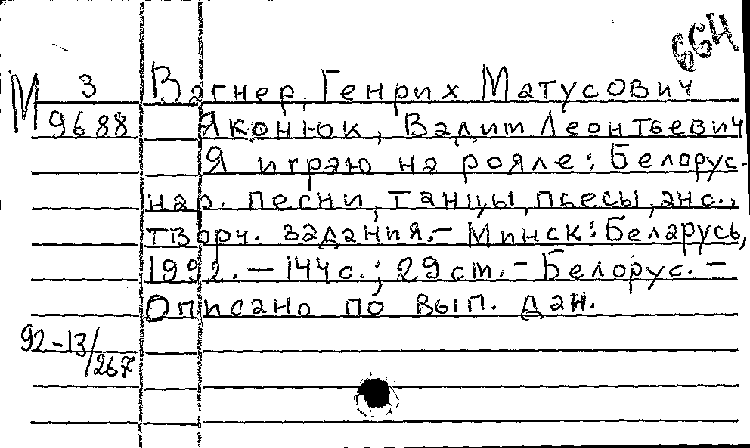 664
М 3 Вагнер, Генрих Матусович
9688 Яконюк, Вадим Леонтьевич
Я играю на рояле: Белорус.
нар. песни, танцы, пьесы, анс.,
творч. задания.- Минск: Беларусь,
1992. - 144с.; 29 cm. - Белорус. -
Описано по вып. дан.
92-13/267